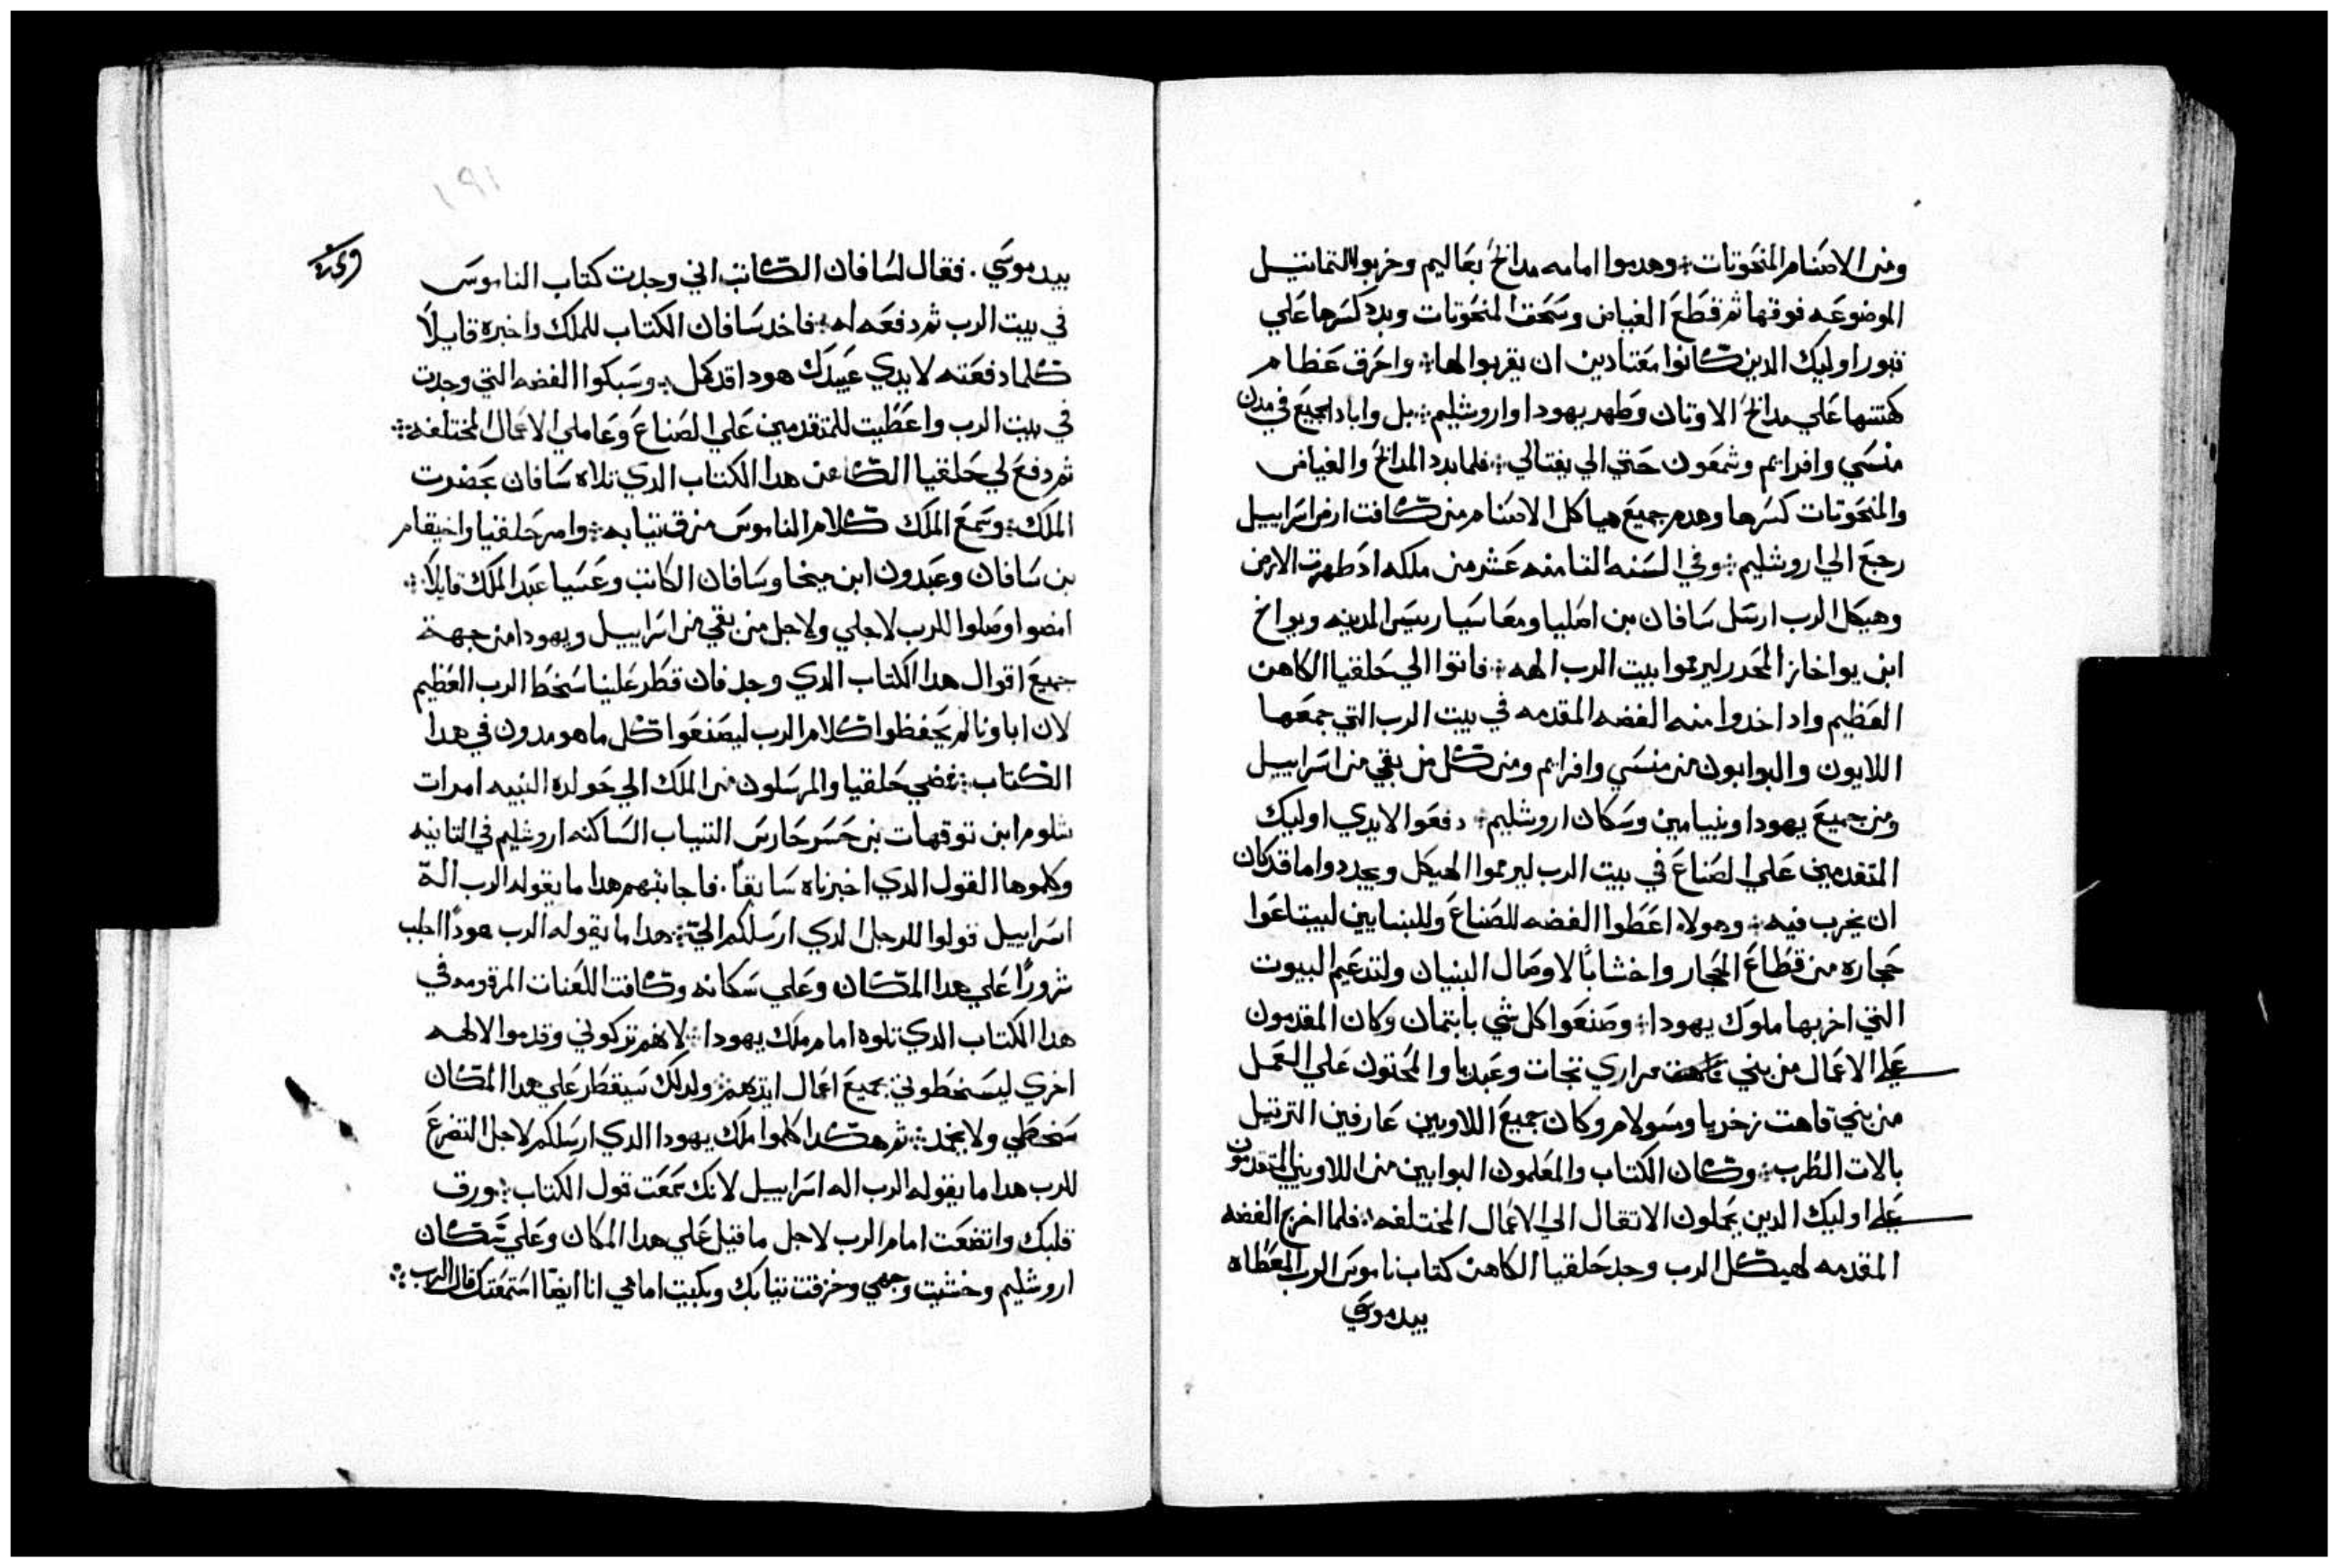 ومن الاصنام المنحوتات : وهدموا امامه مدابح بعاليم وخربوا التماتيل
الموضوعه فوقها ثم قطع الغياض وسحق المنحوتات وبدد كسرها علي
قبور اوليك الدين كانوا معتادين ان يقربوا لها : واحرق عظام
كهنتها علي مدابح الاوتان وطهر يهودا واروشليم : بل واباد الجميع في مدن
منسي وافرايم وشمعون حتي الي يفتالي : فلما بدد المدابح والغياض
والمنحوتات كسرها وهدم جميع هياكل الاصنام من كافت ارض اسراييل
رجع الي اروشليم : وفي السنه التامنه عشر من ملكه اد طهرت الارض
وهيكل الرب ارسل سافان بن اصليا ومعاسيا رييس المدينه ويواخ
ابن يواخاز المحدر ليرمموا بيت الرب الهه : فاتوا الي حلقيا الكاهن
العظيم واد اخدوا منه الفضه المقدمه في بيت الرب التي جمعها
اللايون والبوابون من منسي وافرايم ومن كل من بقي من اسراييل
ومن جميع يهودا وبنيامين وسكان اروشليم : دفعوا لايدي اوليك
المتقدمين علي الصناع في بيت الرب ليرمموا الهيكل ويجددوا ما قد كان
ان يخرب فيه : وهولاء اعطوا الفضه للصناع وللبنايين ليبتاعوا
حجاره من قطاع الحجار واخشابًا لاوصال البنيان ولتدعيم البيوت
التي اخربها ملوك يهودا : وصنعوا كل شي بايتمان وكان المقدمون
علي الاعمال من بني مراري تجات وعبديا والمحتون علي العمل
من بني قاهت زخريا وسولام وكان جميع اللاويين عارفين الترتيل
بالات الطرب : وكان الكتاب والمعلمون البوابين من اللاويين المتقدمون
علي اوليك الدين يحملون الاتقال الي الاعمال المختلفه : فلما اخرج الفضه
المقدمه لهيكل الرب وجد حلقيا الكاهن كتاب ناموس الرب المعطاه
بيد موسي
١٩١
بيد موسي . فقال لسافان الكاتب اني وجدت كتاب الناموس
في بيت الرب ثم دفعه له : فاخد سافان الكتاب للملك واخبره قايلًا
كلما دفعته لايدي عبيدك هودا قد كمل : وسبكوا الفضه التي وجدت
في بيت الرب واعطيت للمتقدمين علي الصناع وعاملي الاعمال المختلفه :
ثم دفع لي حلقيا الكاهن هدا الكتاب الدي تلاه سافان بحضرت
الملك : وسمع الملك كلام الناموس مزق تيابه : وامر حلقيا واخيقام
بن سافان وعبدون ابن ميخا وسافان الكاتب وعسيا عبد الملك قايلًا :
امضوا وصلوا للرب لاجلي ولاجل من بقي من اسراييل ويهودا من جهة
جميع اقوال هدا الكتاب الدي وجد فان قطر علينا سخط الرب العظيم
لان اباونا لم يحفظوا كلام الرب ليصنعوا كل ما هو مدون في هدا
الكتاب : فمضي حلقيا والمرسلون من الملك الي حولده النبيه امرات
شلوم ابن توقهات بن حسر حارس التياب الساكنه اروشليم في التانيه
وكلموها القول الدي اخبرناه سابقًا . فاجابتهم هدا ما يقوله الرب الة
اسراييل قولوا للرجل الدي ارسلكم اليّ : هدا ما يقوله الرب هودًا اجلب
شرورًا علي هدا المكان وعلي سكانه وكافت اللعنات المرقومه في
هدا الكتاب الدي تلوه امام ملك يهودا : لانهم تركوني وقدموا لالهه
اخري ليسخطوني بجميع اعمال ايديهم : ولدلك سيقطر علي هدا المكان
سخطي ولا يخمد : ثم هكدا كلموا ملك يهودا الدي ارسلكم لاجل التضرع
للرب هدا ما يقوله الرب اله اسراييل لانك سمعت قول الكتاب : ورق
قلبك واتضعت امام الرب لاجل ما قيل علي هدا المكان وعلي سكان
اروشليم وخشيت وجهي وخرقت تيابك وبكيت امامي انا ايضًا استمعتك قال الرب :